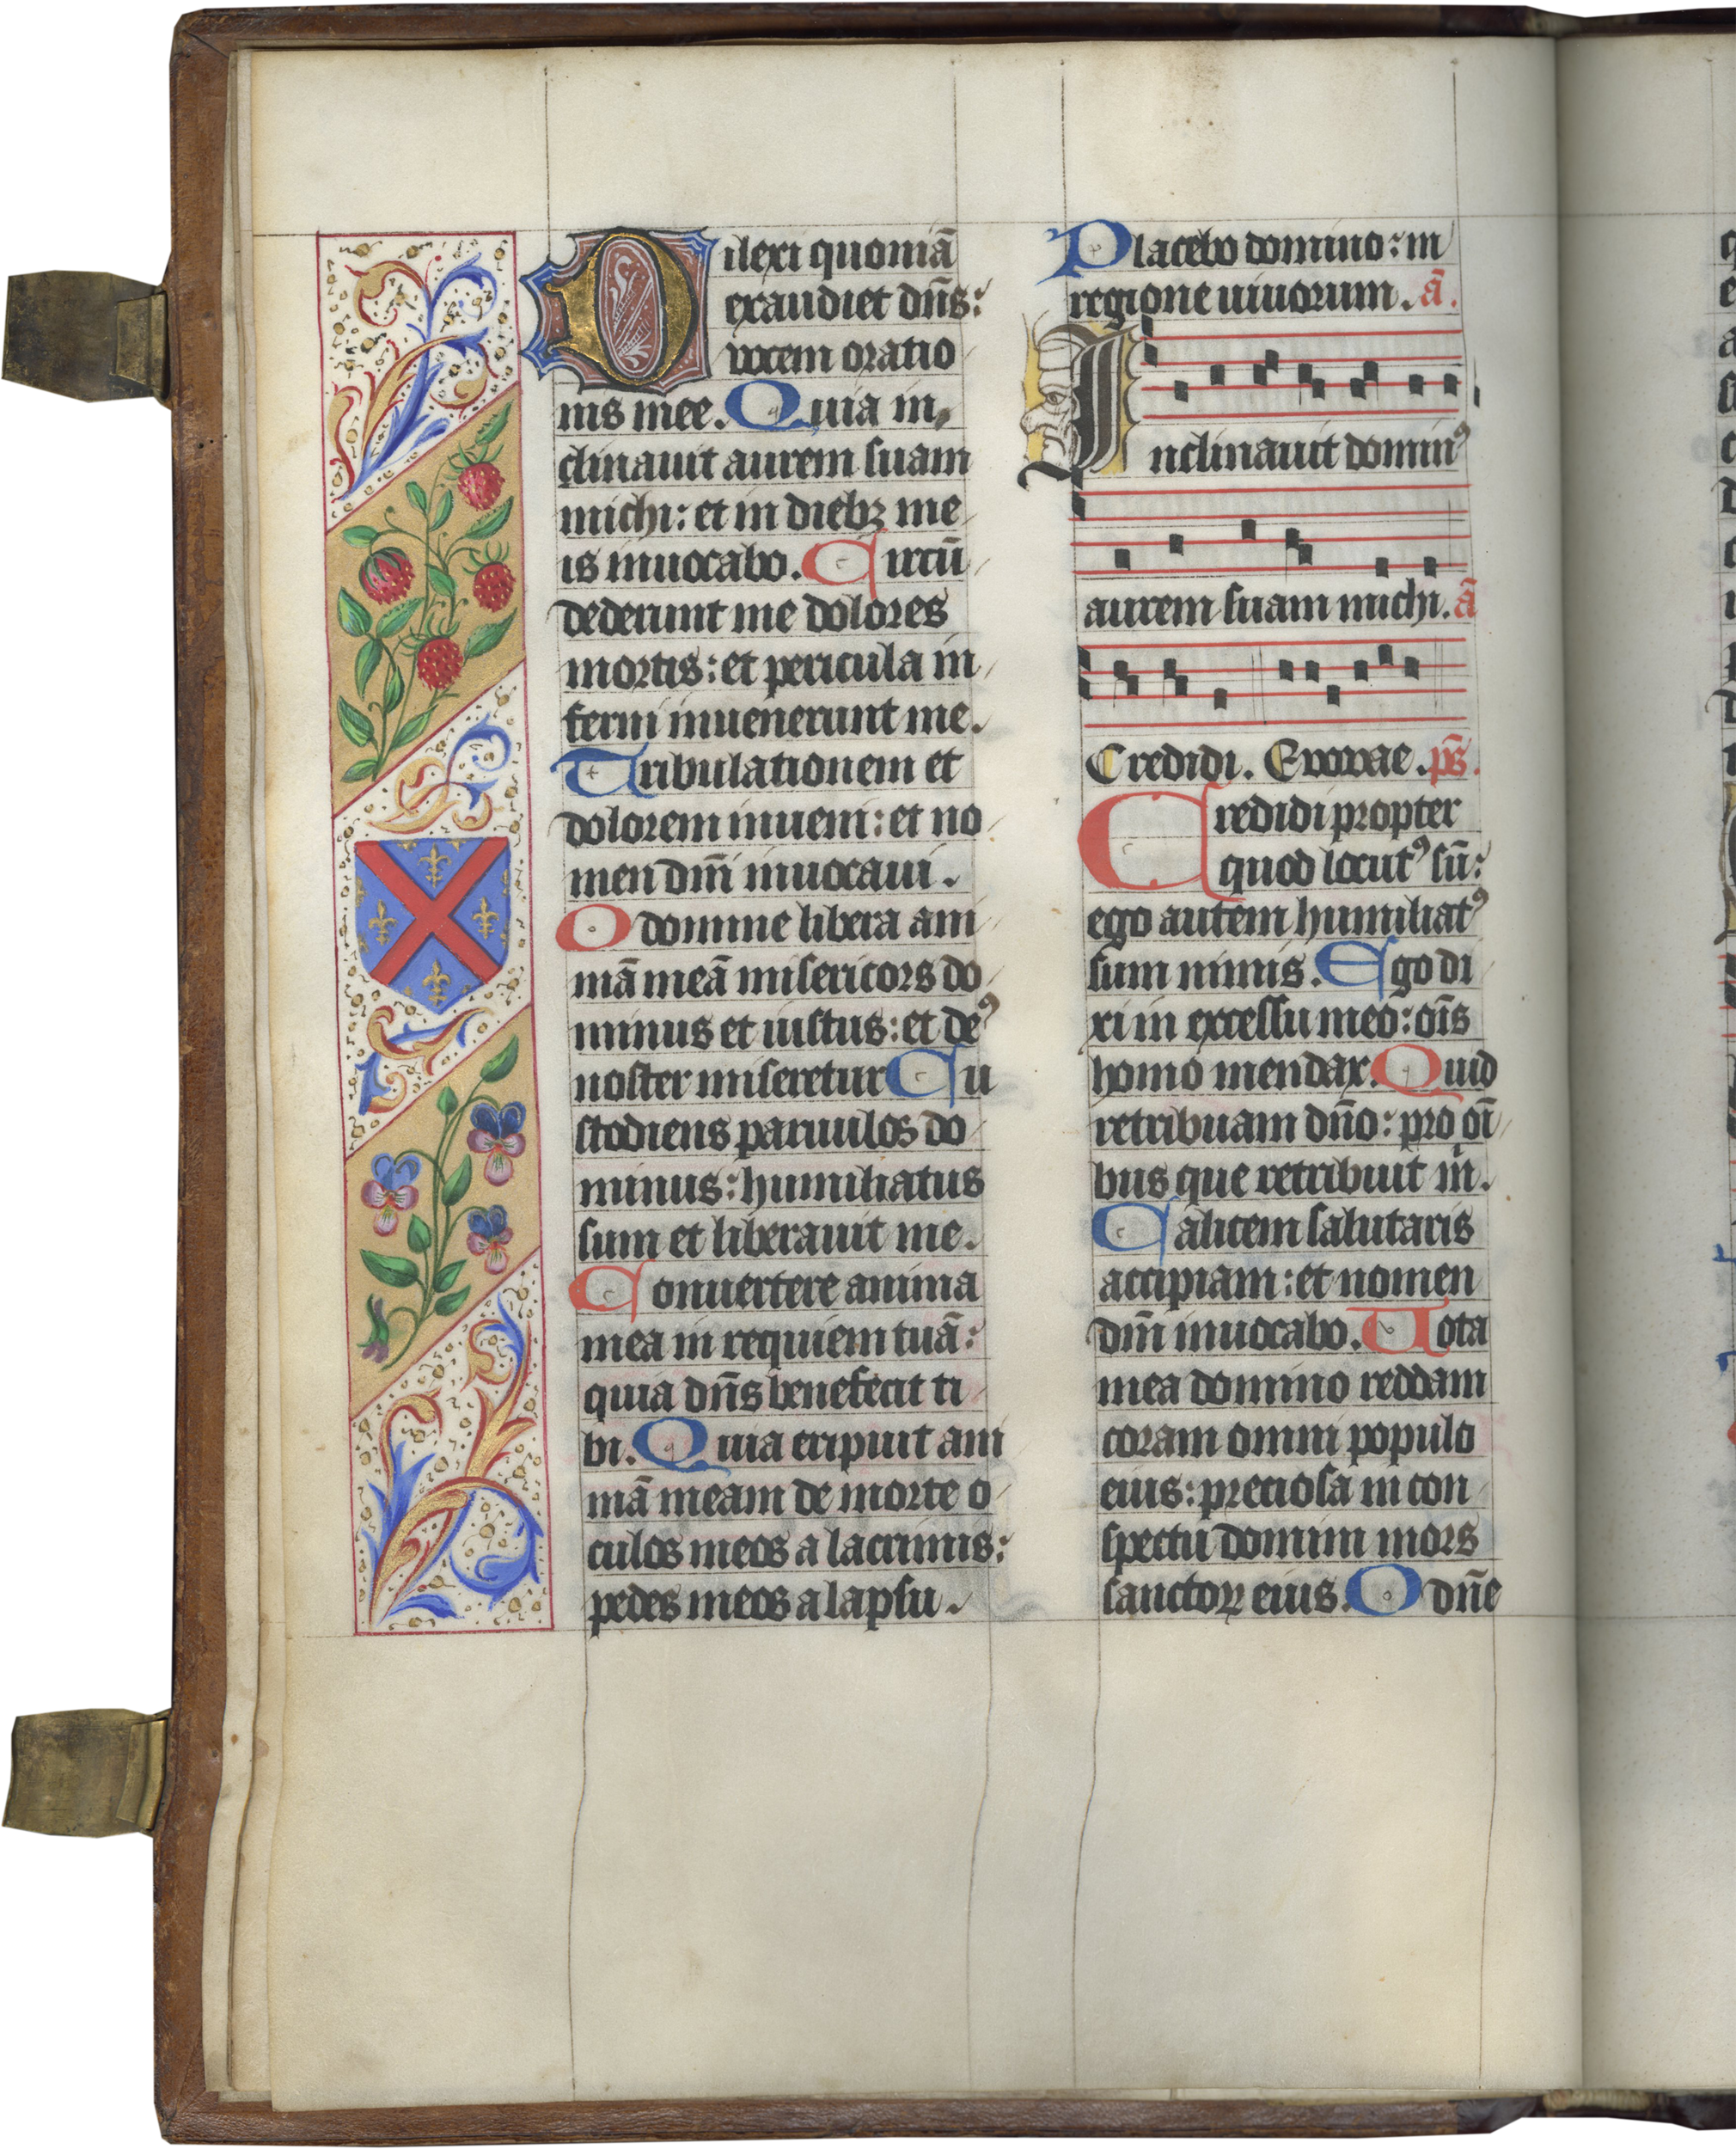 Dilexi quoniā
exaudiet dn̄s:
vocem oratio
nis mee. Quia in
clinauit aurem suam
michi: et in diebꝫ me
is inuocabo. Circū
dederunt me dolores
mortis: et pericula in
ferni inuenerunt me.
Tribulationem et
dolorem inueni: et no
men dn̄i inuocaui.
O domine libera ani
mā meā misericors do
minus et iustus: et deꝰ
noster miseretur Cu
stodiens paruulos do
minus: humiliatus
sum et liberauit me.
Conuertere anima
mea in requiem tuā:
quia dn̄s benefecit ti
bi. Quia eripuit ani
mā meam de morte o
culos meos a lacrimis:
pedes meos a lapsu.
Placebo domino: in
regione uiuorum. ā.
Inclinauit dominꝰ
aurem suam michi. ā
Credidi. Evovae. ps̄.
Credidi propter
quod locutꝰ sū:
ego autem humiliatꝰ
sum nimis. Ego di
xi in excessu meo: oīs
homo mendax. Quid
retribuam dn̄o: pro oī
bus que retribuit m̄.
Calicem salutaris
accipiam: et nomen
dn̄i inuocabo. Vota
mea domino reddam
coram omni populo
eius: preciosa in con
spectu domini mors
sanctoꝝ eius. O dn̄e